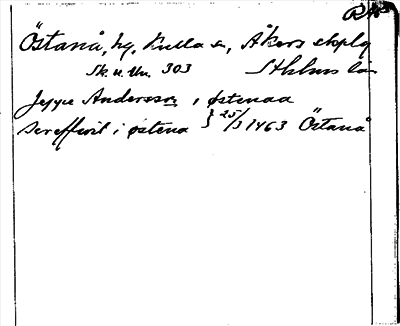 RAp
Östanå, hg, Kulla sn, Åkers skplg
Sk. u. Un. 303 Sthlms län
Jeppe Andersson i østenaa
Sereffwit i østena } 25/3 1463 Östanå